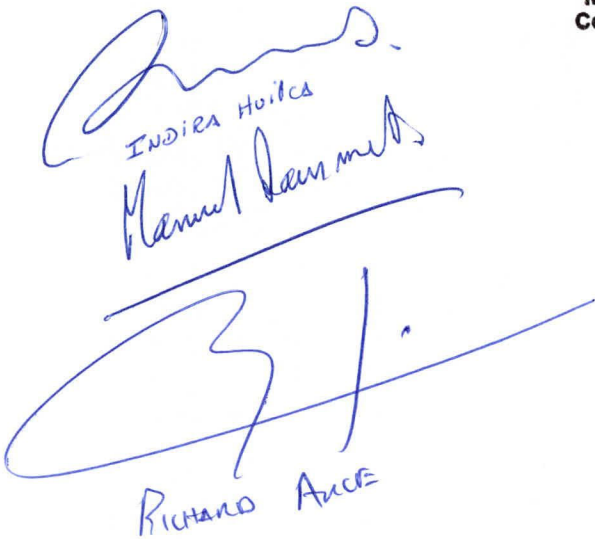 Co
INDIRA HUILCA
Manuel Dammert
RICHARD ARCE